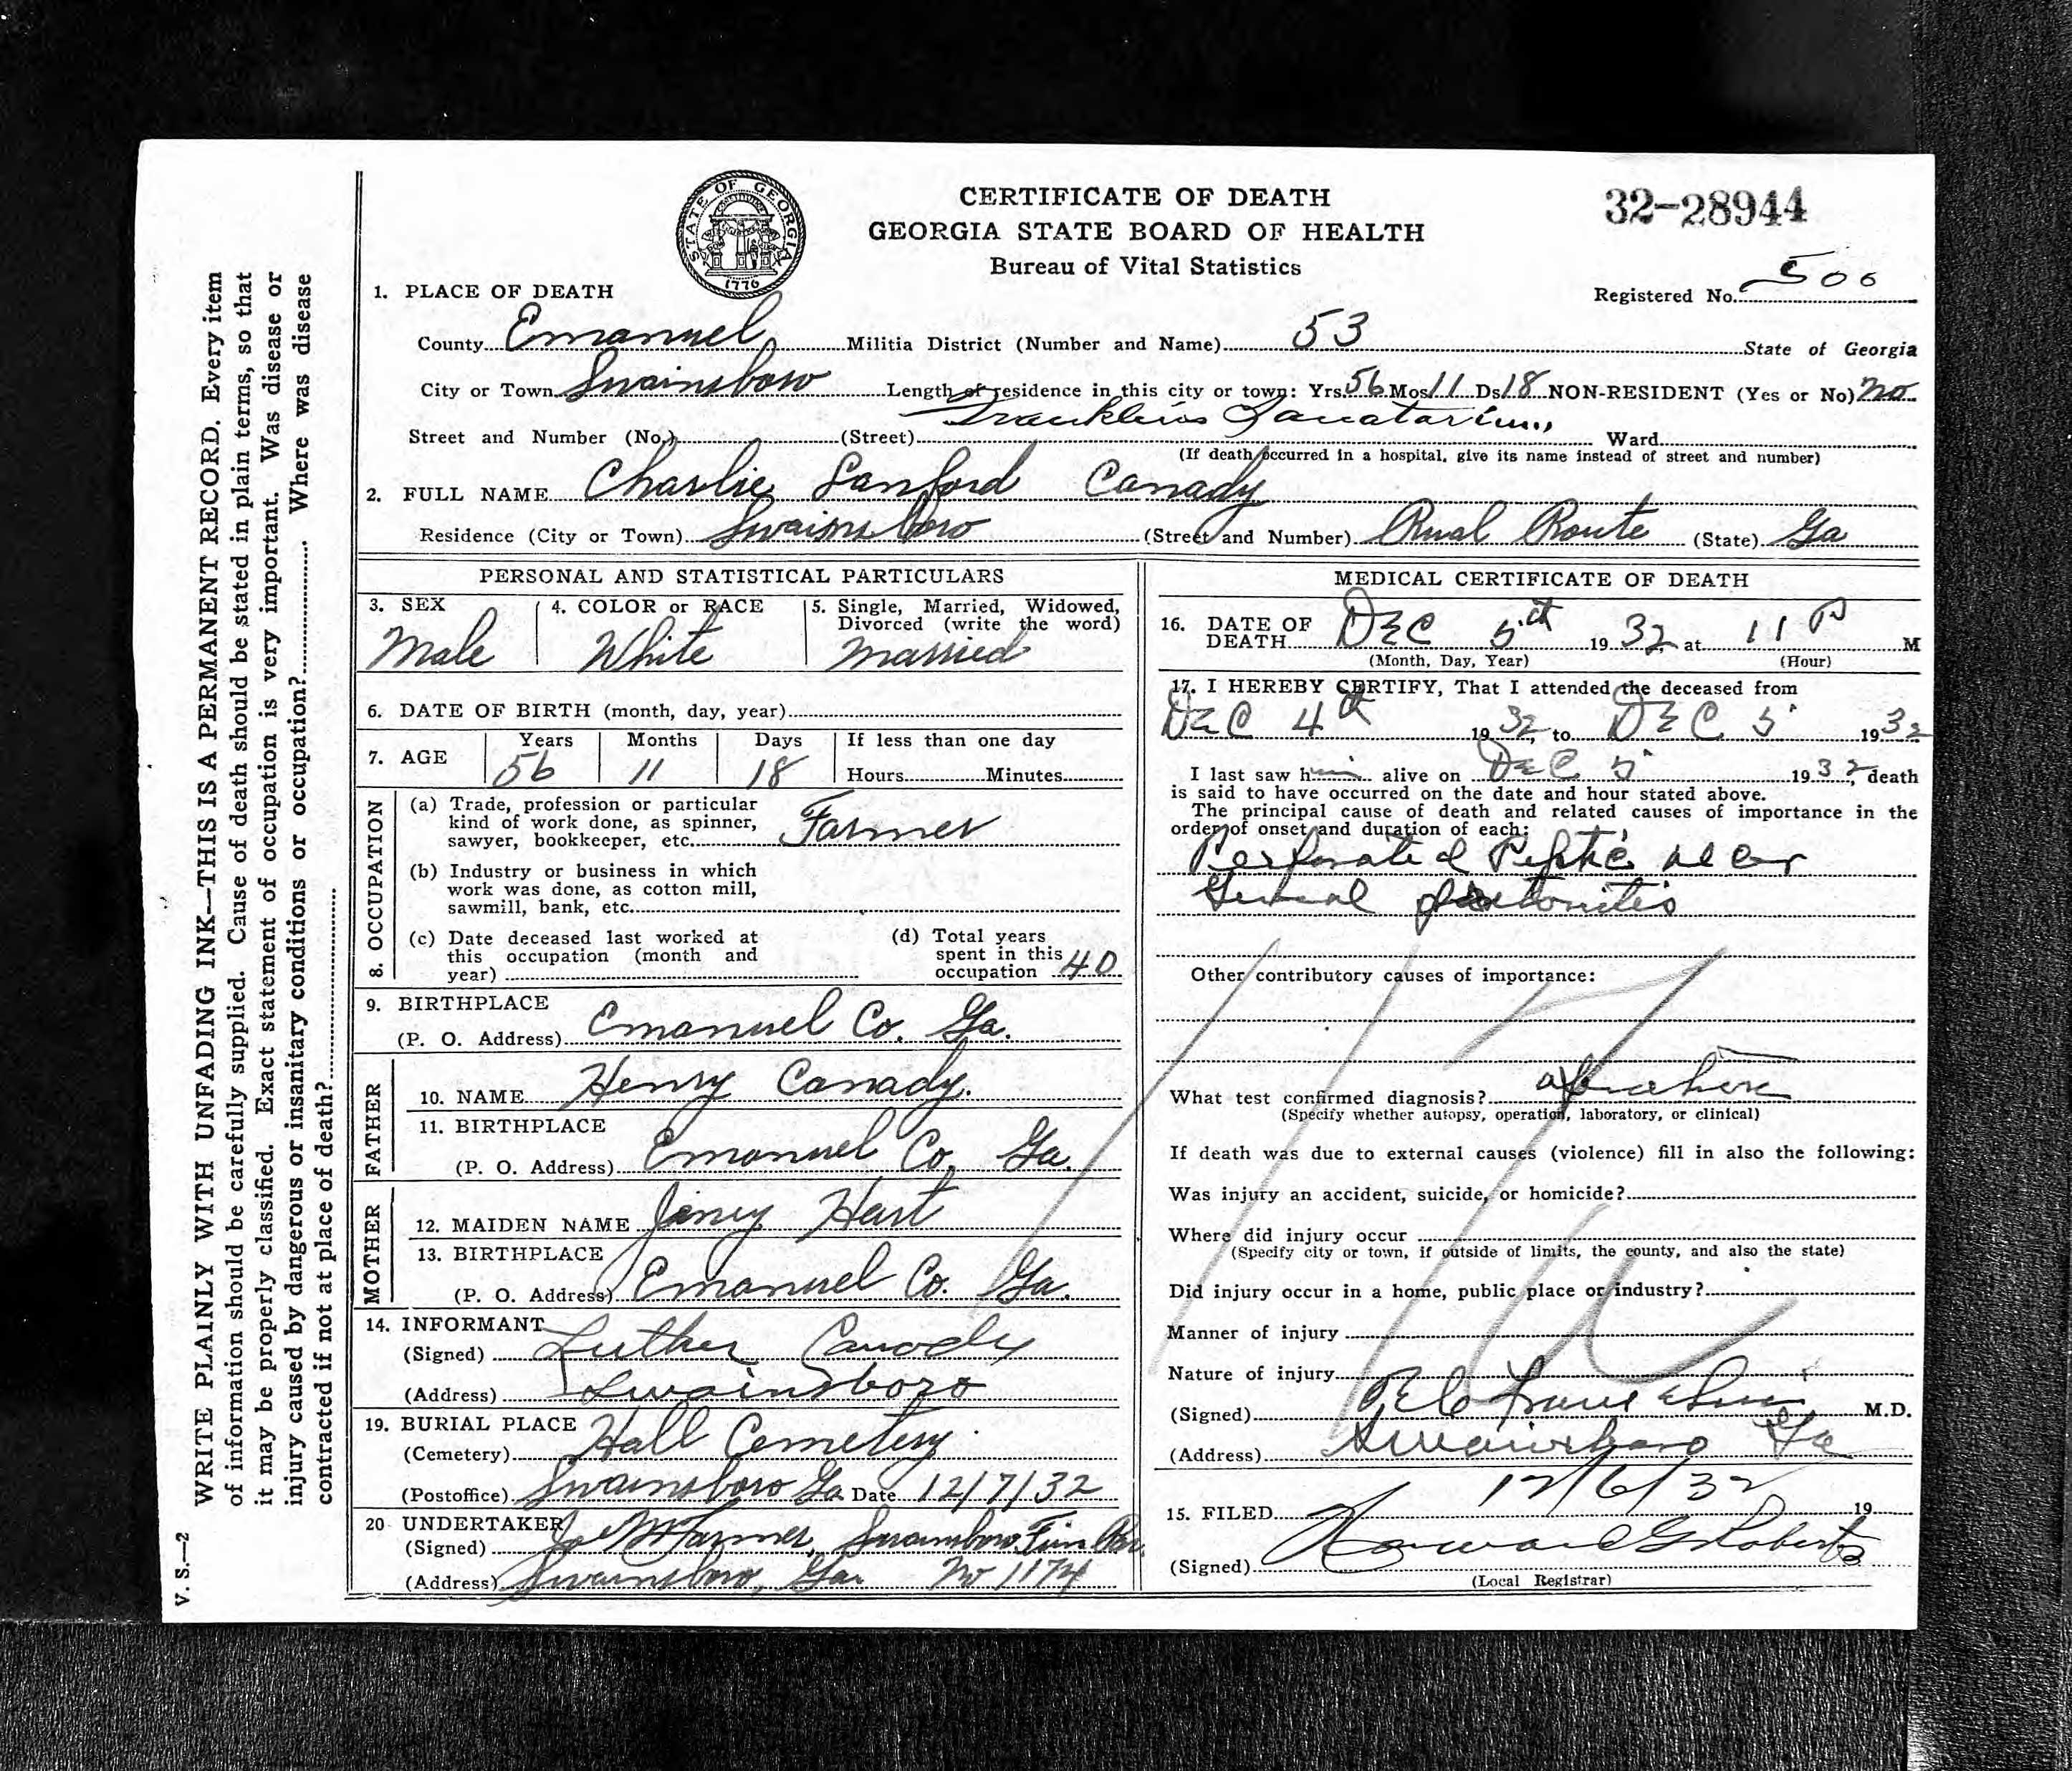 CERTIFICATE OF DEATH
GEORGIA STATE BOARD OF HEALTH
Bureau of Vital Statistics
32-28944
STATE OF GEORGIA
CONSTITUTION
1776
Registered No. 500
1. PLACE OF DEATH
County Emanuel Militia District (Number and Name) 53 State of Georgia
City or Town Swainsboro Length of residence in this city or town: Yrs. 56 Mos 11 Ds 18 NON-RESIDENT (Yes or No) No
Street and Number (No.) (Street) Franklins Sanatarium, Ward
(If death occurred in a hospital, give its name instead of street and number)
2. FULL NAME Charlie Sanford Canady
Residence (City or Town) Swainsboro (Street and Number) Rural Route (State) Ga
PERSONAL AND STATISTICAL PARTICULARS
3. SEX Male
4. COLOR or RACE White
5. Single, Married, Widowed, Divorced (write the word) Married
6. DATE OF BIRTH (month, day, year)
7. AGE Years 56 Months 11 Days 18 If less than one day Hours Minutes
8. OCCUPATION
(a) Trade, profession or particular
kind of work done, as spinner,
sawyer, bookkeeper, etc. Farmer
(b) Industry or business in which
work was done, as cotton mill,
sawmill, bank, etc.
(c) Date deceased last worked at
this occupation (month and
year)
(d) Total years
spent in this
occupation 40
9. BIRTHPLACE
(P. O. Address) Emanuel Co. Ga.
FATHER
10. NAME Henry Canady.
11. BIRTHPLACE
(P. O. Address) Emanuel Co. Ga.
MOTHER
12. MAIDEN NAME Janey Hart
13. BIRTHPLACE
(P. O. Address) Emanuel Co. Ga.
14. INFORMANT
(Signed) Luther Canady
(Address) Swainsboro
19. BURIAL PLACE
(Cemetery) Hall Cemetery.
(Postoffice) Swainsboro Ga Date 12/7/32
20 UNDERTAKER
(Signed) Swainsboro
(Address) Swainsboro, Ga. No 1174
MEDICAL CERTIFICATE OF DEATH
16. DATE OF
DEATH DEC 5th 1932 at 11 P M
(Month, Day, Year) (Hour)
17. I HEREBY CERTIFY, That I attended the deceased from
DEC 4th 1932, to DEC 5 1932
I last saw him alive on DEC 5 1932, death
is said to have occurred on the date and hour stated above.
The principal cause of death and related causes of importance in the
order of onset and duration of each:
Perforated Peptic ulcer
General peritonitis
Other contributory causes of importance:
What test confirmed diagnosis? operation
(Specify whether autopsy, operation, laboratory, or clinical)
If death was due to external causes (violence) fill in also the following:
Was injury an accident, suicide, or homicide?
Where did injury occur
(Specify city or town, if outside of limits, the county, and also the state)
Did injury occur in a home, public place or industry?
Manner of injury
Nature of injury
(Signed) M.D.
(Address) Swainsboro Ga
15. FILED 12/6/32 19
(Signed) Roberts
(Local Registrar)
WRITE PLAINLY WITH UNFADING INK—THIS IS A PERMANENT RECORD. Every item
of information should be carefully supplied. Cause of death should be stated in plain terms, so that
it may be properly classified. Exact statement of occupation is very important. Was disease or
injury caused by dangerous or insanitary conditions or occupation? Where was disease
contracted if not at place of death?
V. S.—2